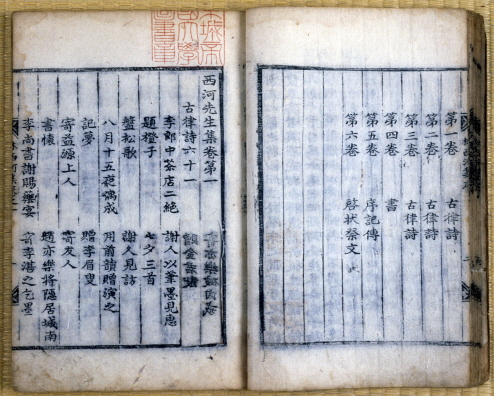 第一卷 古律詩
第二卷 古律詩
第三卷 古律詩
第四卷 書
第五卷 序記傳
第六卷 啓狀祭文
西河先生集卷第一
古律詩六十一
李郎中茶店二絶 謝人以筆墨見惠
題橙子 七夕三首
盤松歌 謝人見訪
八月十五夜偶成 用前韻贈演之
記夢 贈李眉叟
寄益源上人 寄友人
書懷 趙亦樂將隱居城南
李尚書謝賜藥宴 寄李湛之乞墨